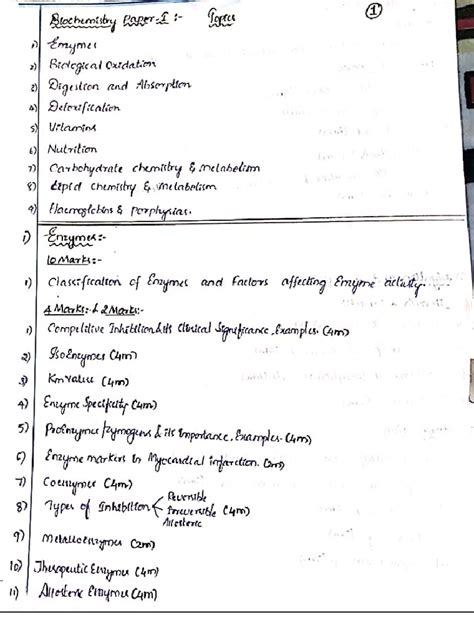 Biochemistry Paper-I :- Topics
①
1) Enzymes
2) Biological Oxidation
3) Digestion and Absorption
4) Detoxification
5) Vitamins
6) Nutrition
7) Carbohydrate chemistry & metabolism
8) Lipid chemistry & metabolism
9) Haemoglobins & Porphyrias.
1) Enzymes:-
10 Marks:-
1) Classification of Enzymes and Factors affecting Enzyme activity
4 Marks:- & 2 Marks:-
1) Competitive Inhibition & its Clinical Significance, Examples. (4m)
2) IsoEnzymes (4m)
3) Km value (4m)
4) Enzyme Specificity (4m)
5) ProEnzymes / zymogens & its Importance, Examples. (4m)
6) Enzyme markers in Myocardial infarction. (2m)
7) Coenzymes (4m)
8) Types of Inhibition Reversible Irreversible Allosteric (4m)
9) Metalloenzymes (2m)
10) Therapeutic Enzymes (4m)
11) Allosteric Enzymes (4m)